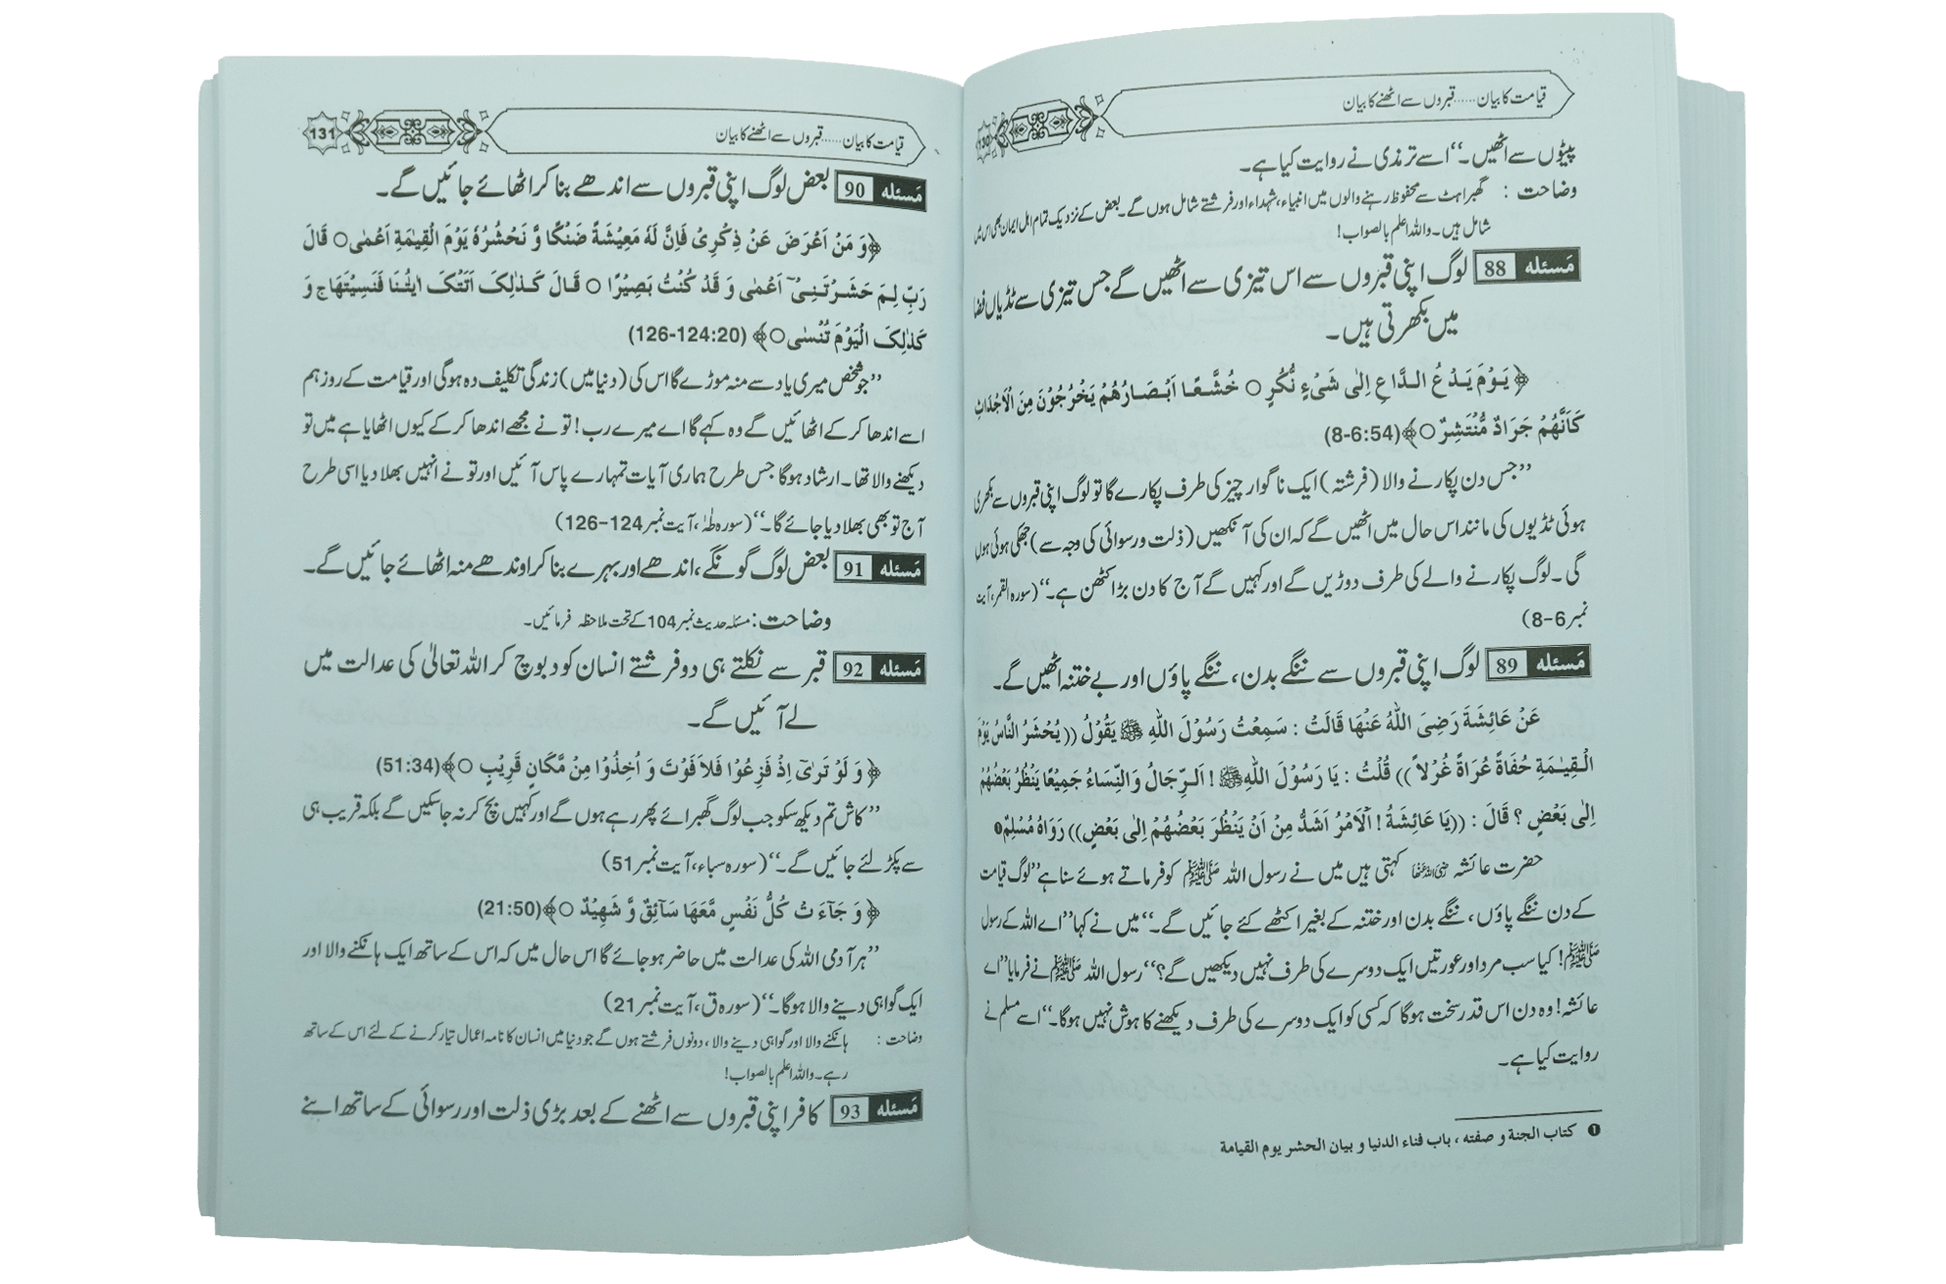 قیامت کا بیان......قبروں سے اٹھنے کا بیان
130
پیٹوں سے اٹھیں۔‘‘ اسے ترمذی نے روایت کیا ہے۔
وضاحت : گھبراہٹ سے محفوظ رہنے والوں میں انبیاء، شہداء اور فرشتے شامل ہوں گے۔ بعض کے نزدیک تمام اہل ایمان بھی اس میں
شامل ہیں۔ واللہ اعلم بالصواب!
مَسئله 88 لوگ اپنی قبروں سے اس تیزی سے اٹھیں گے جس تیزی سے ٹڈیاں فضا
میں بکھرتی ہیں۔
﴿ یَوْمَ یَدْعُ الدَّاعِ اِلٰی شَیْءٍ نُّکُرٍ ○ خُشَّعًا اَبْصَارُهُمْ یَخْرُجُوْنَ مِنَ الْاَجْدَاثِ
کَاَنَّهُمْ جَرَادٌ مُّنْتَشِرٌ ○﴾(54:6-8)
’’جس دن پکارنے والا (فرشتہ) ایک ناگوار چیز کی طرف پکارے گا تو لوگ اپنی قبروں سے بکھری
ہوئی ٹڈیوں کی مانند اس حال میں اٹھیں گے کہ ان کی آنکھیں (ذلت و رسوائی کی وجہ سے) جھکی ہوئی ہوں
گی۔ لوگ پکارنے والے کی طرف دوڑیں گے اور کہیں گے آج کا دن بڑا کٹھن ہے۔‘‘ (سورہ القمر، آیت
نمبر 6-8)
مَسئله 89 لوگ اپنی قبروں سے ننگے بدن، ننگے پاؤں اور بے ختنہ اٹھیں گے۔
عَنْ عَائِشَةَ رَضِیَ اللهُ عَنْهَا قَالَتْ : سَمِعْتُ رَسُوْلَ اللهِ ﷺ یَقُوْلُ ((یُحْشَرُ النَّاسُ یَوْمَ
الْقِیٰمَةِ حُفَاةً عُرَاةً غُرْلاً )) قُلْتُ : یَا رَسُوْلَ اللهِ ﷺ ! اَلرِّجَالُ وَالنِّسَاءُ جَمِیْعًا یَنْظُرُ بَعْضُهُمْ
اِلٰی بَعْضٍ ؟ قَالَ : ((یَا عَائِشَةُ ! اَلْاَمْرُ اَشَدُّ مِنْ اَنْ یَنْظُرَ بَعْضُهُمْ اِلٰی بَعْضٍ)) رَوَاهُ مُسْلِمٌ ❶
حضرت عائشہ رضی اللہ عنہا کہتی ہیں میں نے رسول اللہ ﷺ کو فرماتے ہوئے سنا ہے ’’لوگ قیامت
کے دن ننگے پاؤں، ننگے بدن اور ختنہ کے بغیر اکٹھے کئے جائیں گے۔‘‘ میں نے کہا ’’اے اللہ کے رسول
ﷺ! کیا سب مرد اور عورتیں ایک دوسرے کی طرف نہیں دیکھیں گے؟‘‘ رسول اللہ ﷺ نے فرمایا ’’اے
عائشہ! وہ دن اس قدر سخت ہوگا کہ کسی کو ایک دوسرے کی طرف دیکھنے کا ہوش نہیں ہوگا۔‘‘ اسے مسلم نے
روایت کیا ہے۔
❶ کتاب الجنة و صفته ، باب فناء الدنیا و بیان الحشر یوم القیامة
قیامت کا بیان......قبروں سے اٹھنے کا بیان
131
مَسئله 90 بعض لوگ اپنی قبروں سے اندھے بنا کر اٹھائے جائیں گے۔
﴿وَ مَنْ اَعْرَضَ عَنْ ذِکْرِیْ فَاِنَّ لَهٗ مَعِیْشَةً ضَنْکًا وَّ نَحْشُرُهٗ یَوْمَ الْقِیٰمَةِ اَعْمٰی ○ قَالَ
رَبِّ لِمَ حَشَرْتَنِیْٓ اَعْمٰی وَ قَدْ کُنْتُ بَصِیْرًا ○ قَالَ کَذٰلِکَ اَتَتْکَ اٰیٰتُنَا فَنَسِیْتَهَا ج وَ
کَذٰلِکَ الْیَوْمَ تُنْسٰی ○﴾ (20:124-126)
’’جو شخص میری یاد سے منہ موڑے گا اس کی (دنیا میں) زندگی تکلیف دہ ہوگی اور قیامت کے روز ہم
اسے اندھا کر کے اٹھائیں گے وہ کہے گا اے میرے رب! تو نے مجھے اندھا کر کے کیوں اٹھایا ہے میں تو
دیکھنے والا تھا۔ ارشاد ہوگا جس طرح ہماری آیات تمہارے پاس آئیں اور تو نے انہیں بھلا دیا اسی طرح
آج تو بھی بھلا دیا جائے گا۔‘‘ (سورہ طٰہٰ، آیت نمبر 124-126)
مَسئله 91 بعض لوگ گونگے، اندھے اور بہرے بنا کر اوندھے منہ اٹھائے جائیں گے۔
وضاحت: مسئلہ حدیث نمبر 104 کے تحت ملاحظہ فرمائیں۔
مَسئله 92 قبر سے نکلتے ہی دو فرشتے انسان کو دبوچ کر اللہ تعالیٰ کی عدالت میں
لے آئیں گے۔
﴿ وَ لَوْ تَرٰیٓ اِذْ فَزِعُوْا فَلاَ فَوْتَ وَ اُخِذُوْا مِنْ مَّکَانٍ قَرِیْبٍ ○﴾(51:34)
’’کاش تم دیکھ سکو جب لوگ گھبرائے پھر رہے ہوں گے اور کہیں بچ کر نہ جاسکیں گے بلکہ قریب ہی
سے پکڑ لئے جائیں گے۔‘‘ (سورہ سباء، آیت نمبر 51)
﴿ وَ جَآءَ تْ کُلُّ نَفْسٍ مَّعَهَا سَآئِقٌ وَّ شَهِیْدٌ ○﴾(21:50)
’’ہر آدمی اللہ کی عدالت میں حاضر ہو جائے گا اس حال میں کہ اس کے ساتھ ایک ہانکنے والا اور
ایک گواہی دینے والا ہوگا۔‘‘ (سورہ ق، آیت نمبر 21)
وضاحت : ہانکنے والا اور گواہی دینے والا، دونوں فرشتے ہوں گے جو دنیا میں انسان کا نامہ اعمال تیار کرنے کے لئے اس کے ساتھ
رہے۔ واللہ اعلم بالصواب!
مَسئله 93 کافر اپنی قبروں سے اٹھنے کے بعد بڑی ذلت اور رسوائی کے ساتھ اپنے